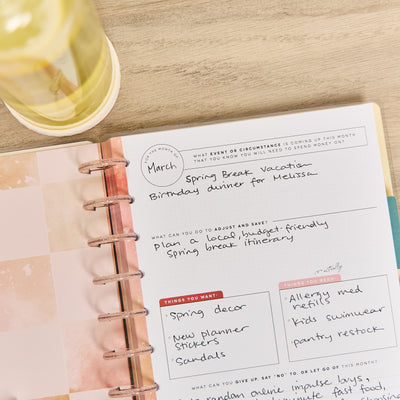 FOR THE MONTH OF
March
WHAT EVENT OR CIRCUMSTANCE IS COMING UP THIS MONTH
THAT YOU KNOW YOU WILL NEED TO SPEND MONEY ON?
Spring Break Vacation
Birthday dinner for Melissa
WHAT CAN YOU DO TO ADJUST AND SAVE?
Plan a local, budget-friendly
Spring break itinerary
THINGS YOU WANT:
· Spring decor
· New planner
stickers
· Sandals
*actually
THINGS YOU NEED:
· Allergy med
refills
· Kids swimwear
· pantry restock
WHAT CAN YOU GIVE UP, SAY "NO" TO, OR LET GO OF THIS MONTH?
random online impulse buys,
minute fast food,